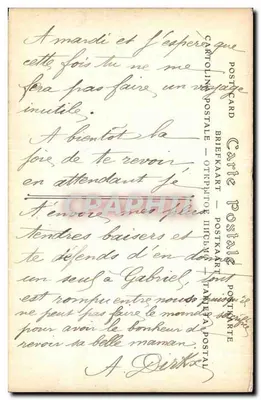 A mardi et j'espère que
cette fois tu ne me
fera pas faire un voyage
inutile.
A bientôt la
joie de te revoir
en attendant je
t'envoie mes plus
tendres baisers et te
défends d'en donner
un seul à Gabriel, tout
est rompu entre nous puisqu'il
ne peut pas faire le moindre sacrifice
pour avoir le bonheur de
revoir sa belle maman.
A
Carte Postale
POSTCARD
BRIEFKAART — POSTKAART
CARTOLINA POSTALE — ОТКРЫТОЕ ПИСЬМО — TARJETA POSTAL